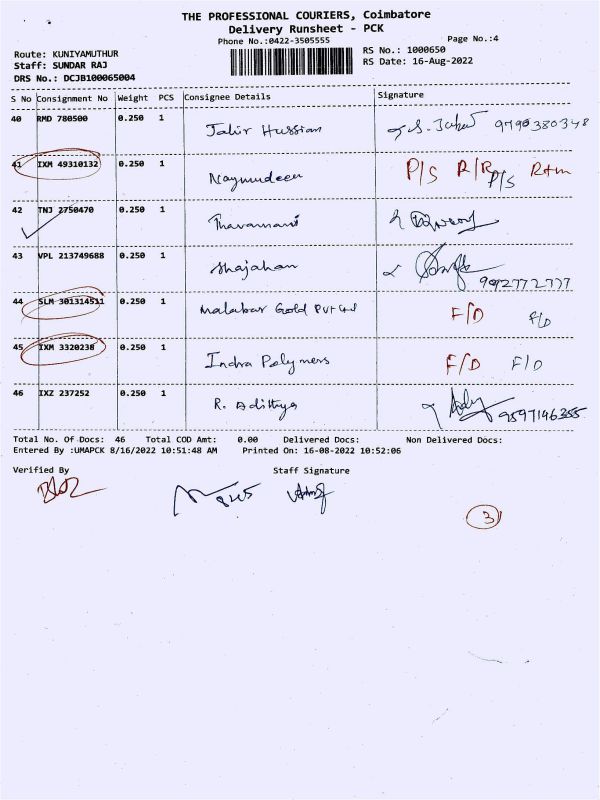 THE PROFESSIONAL COURIERS, Coimbatore
Delivery Runsheet - PCK
Phone No.:0422-3505555 Page No.:4
Route: KUNIYAMUTHUR RS No.: 1000650
Staff: SUNDAR RAJ RS Date: 16-Aug-2022
DRS No.: DCJB100065004
S No Consignment No Weight PCS Consignee Details Signature
40 RMD 780500 0.250 1 Jahir Hussian 9790380348
41 IXM 49310132 0.250 1 Naymudeen P/S R/R P/S Rtn
42 TNJ 2750470 0.250 1 Thavamani
43 VPL 213749688 0.250 1 Shajahan 9092772777
44 SLM 301314511 0.250 1 Malabar Gold Pvt Ltd F/D F/D
45 IXM 3320238 0.250 1 Indra Polymers F/D F/D
46 IXZ 237252 0.250 1 R. Adithya 9597146355
Total No. Of Docs: 46 Total COD Amt: 0.00 Delivered Docs: Non Delivered Docs:
Entered By :UMAPCK 8/16/2022 10:51:48 AM Printed On: 16-08-2022 10:52:06
Verified By Staff Signature
3